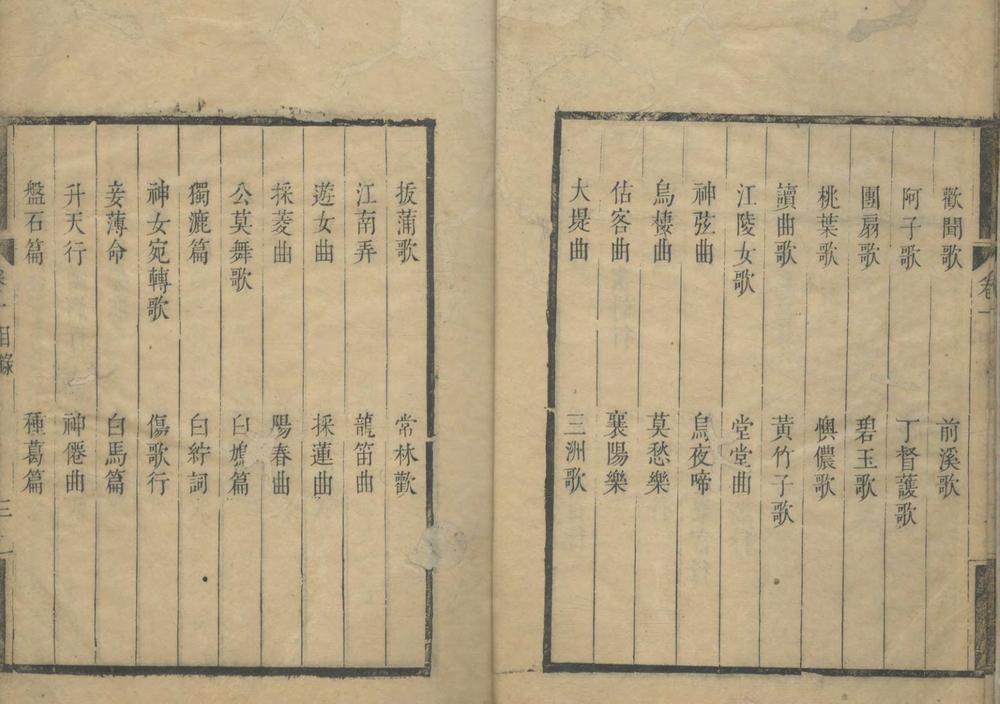 歡聞歌 前溪歌
阿子歌 丁督護歌
團扇歌 碧玉歌
桃葉歌 懊儂歌
讀曲歌 黃竹子歌
江陵女歌 堂堂曲
神弦曲 烏夜啼
烏棲曲 莫愁樂
估客曲 襄陽樂
大堤曲 三洲歌
拔蒲歌 常林歡
江南弄 龍笛曲
遊女曲 採蓮曲
採菱曲 陽春曲
公莫舞歌 白鳩篇
獨漉篇 白紵詞
神女宛轉歌 傷歌行
妾薄命 白馬篇
升天行 神僊曲
盤石篇 種葛篇
卷一 目錄 三